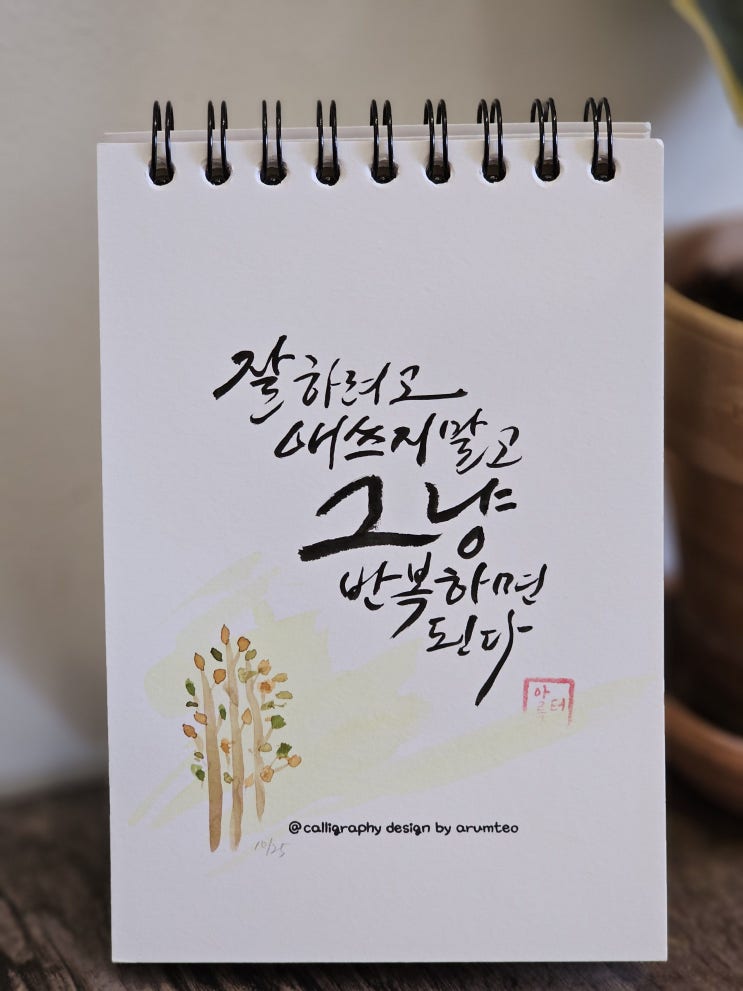 잘하려고
애쓰지말고
그냥
반복하면
된다
아름터
@calligraphy design by arumteo
10/25